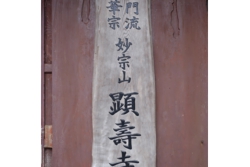 門流
華宗
妙宗山
顕壽寺